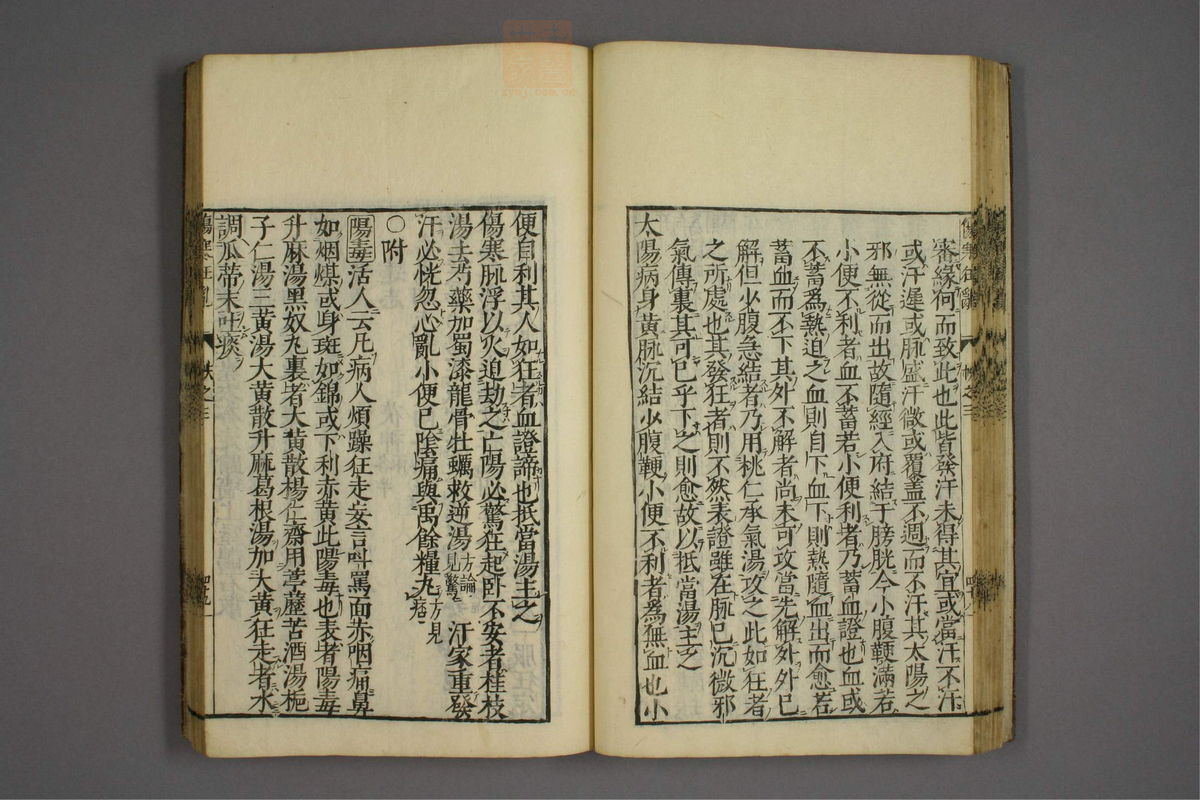 審緣何而致此也此皆發汗未得其宜或當汗不汗
或汗遲或脉盛汗微或覆盖不週而不汗其太陽之
邪無從而出故隨經入府結于膀胱今小腹鞕滿若
小便不利者血不蓄若小便利者乃蓄血證也血或
不蓄爲熱迫之血則自下血下則熱隨血出而愈若
蓄血而不下其外不解者尚未可攻當先解外外已
解但少腹急結者乃用桃仁承氣湯攻之此如狂者
之所處也其發狂者則不然表證雖在脉已沉微邪
氣傳裏其可已乎下之則愈故以抵當湯主之
太陽病身黄脉沉結少腹鞕小便不利者爲無血也小
便自利其人如狂者血證諦也抵當湯主之
傷寒脉浮以火迫劫之亡陽必驚狂起卧不安者桂枝
湯去芍藥加蜀漆龍骨牡蠣救逆湯方論見驚汗家重發
汗必恍忽心亂小便已陰痛與禹餘糧丸方見痞
〇附
陽毒活人云凡病人煩躁狂走妄言叫罵面赤咽痛鼻
如烟煤或身斑如錦或下利赤黄此陽毒也表者陽毒
升麻湯黑奴丸裏者大黄散楊仁齋用葶藶苦酒湯梔
子仁湯三黄湯大黄散升麻葛根湯加大黄狂走者水
調瓜蒂末吐痰